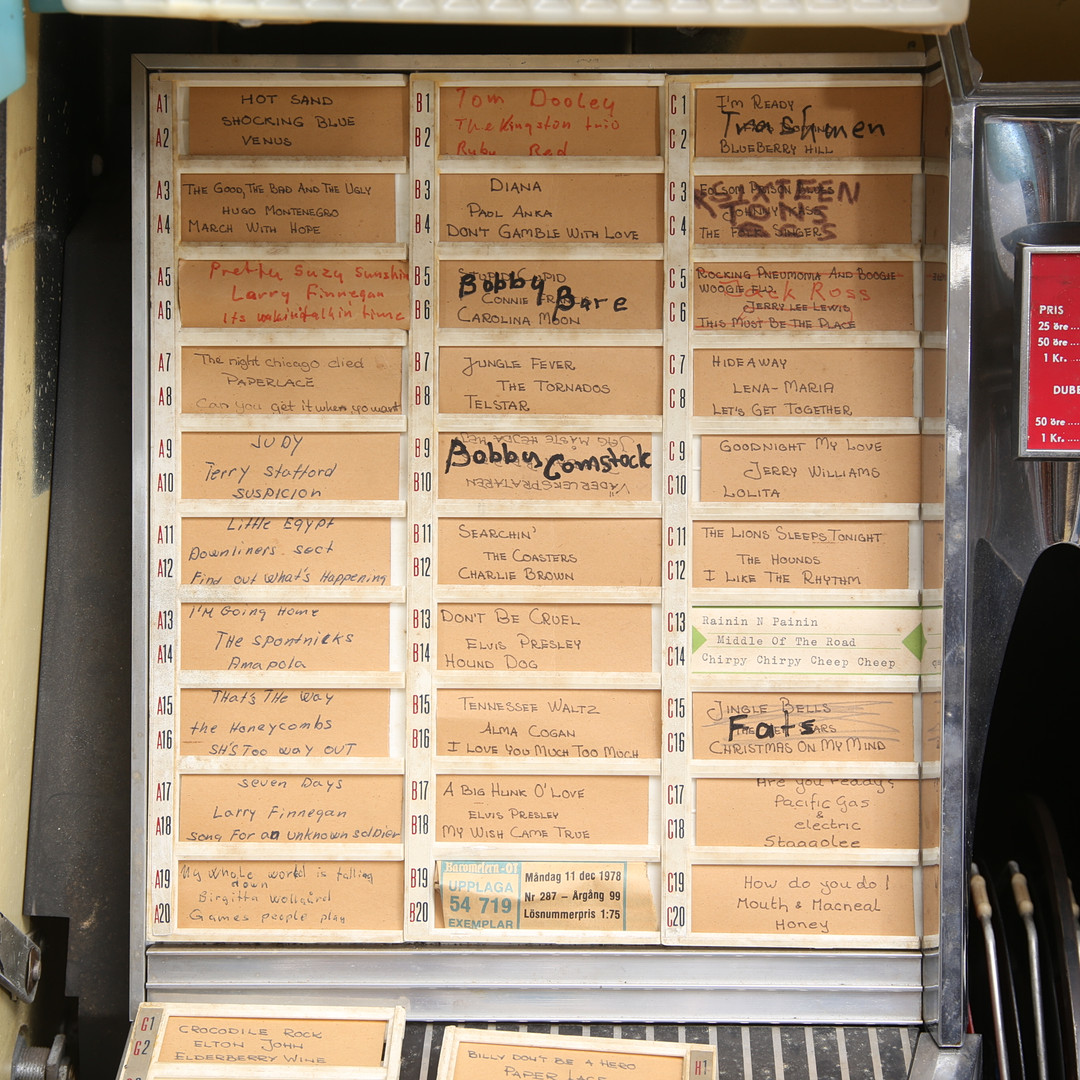 A1
A2
HOT SAND
SHOCKING BLUE
VENUS
A3
A4
THE GOOD, THE BAD AND THE UGLY
HUGO MONTENEGRO
MARCH WITH HOPE
A5
A6
Pretty Suzy Sunshin
Larry Finnegan
Its walkintalkin time
A7
A8
The night chicago died
PAPERLACE
Can you get it when yo want
A9
A10
JUDY
Terry Stafford
SUSPICION
A11
A12
Little Egypt
Downliners sect
Find out What's Happening
A13
A14
I'M Going Home
The spontnicks
Amapola
A15
A16
That's The Way
the Honeycombs
SH'S Too way out
A17
A18
seven Days
Larry Finnegan
song For an unknown soldier
A19
A20
My whole world is falling
down
Birgitta wollgård
Games people play
B1
B2
Tom Dooley
The kingston trio
Ruby Red
B3
B4
DIANA
PAOL ANKA
DON'T GAMBLE WITH LOVE
B5
B6
STUPID CUPID
Bobby Bare
CONNIE
CAROLINA MOON
B7
B8
JUNGLE FEVER
THE TORNADOS
TELSTAR
B9
B10
JAG MÅSTE HEJDA MEJ
Bobby Comstock
VÄDERLEKSPRATAREN
B11
B12
SEARCHIN'
THE COASTERS
CHARLIE BROWN
B13
B14
DON'T BE CRUEL
ELVIS PRESLEY
HOUND DOG
B15
B16
TENNESSEE WALTZ
ALMA COGAN
I LOVE YOU MUCH TOO MUCH
B17
B18
A BIG HUNK O' LOVE
ELVIS PRESLEY
MY WISH CAME TRUE
B19
B20
Barometern-OT
UPPLAGA
54 719
EXEMPLAR
Måndag 11 dec 1978
Nr 287 – Årgång 99
Lösnummerpris 1:75
C1
C2
I'M READY
Trashmen
BLUEBERRY HILL
C3
C4
FOLSOM PRISON BLUES
SIXTEEN
JOHNNY CASH
TONS
THE FOLK SINGER
C5
C6
ROCKING PNEUMONIA AND BOOGIE-
WOOGIE FLU
Jack Ross
JERRY LEE LEWIS
THIS MUST BE THE PLACE
C7
C8
HIDEAWAY
LENA-MARIA
LET'S GET TOGETHER
C9
C10
GOODNIGHT MY LOVE
JERRY WILLIAMS
LOLITA
C11
C12
THE LIONS SLEEPS TONIGHT
THE HOUNDS
I LIKE THE RHYTHM
C13
C14
Rainin N Painin
Middle Of The Road
Chirpy Chirpy Cheep Cheep
C15
C16
JINGLE BELLS
Fats
CHRISTMAS ON MY MIND
C17
C18
Are you ready?
Pacific Gas
&
electric
Staagolee
C19
C20
How do you do!
Mouth & Macneal
Honey
PRIS
25 öre....
50 öre....
1 Kr. ....
DUBB
50 öre....
1 Kr. ....
G1
G2
CROCODILE ROCK
ELTON JOHN
ELDERBERRY WINE
BILLY DON'T BE A HERO
PAPER LACE
H1